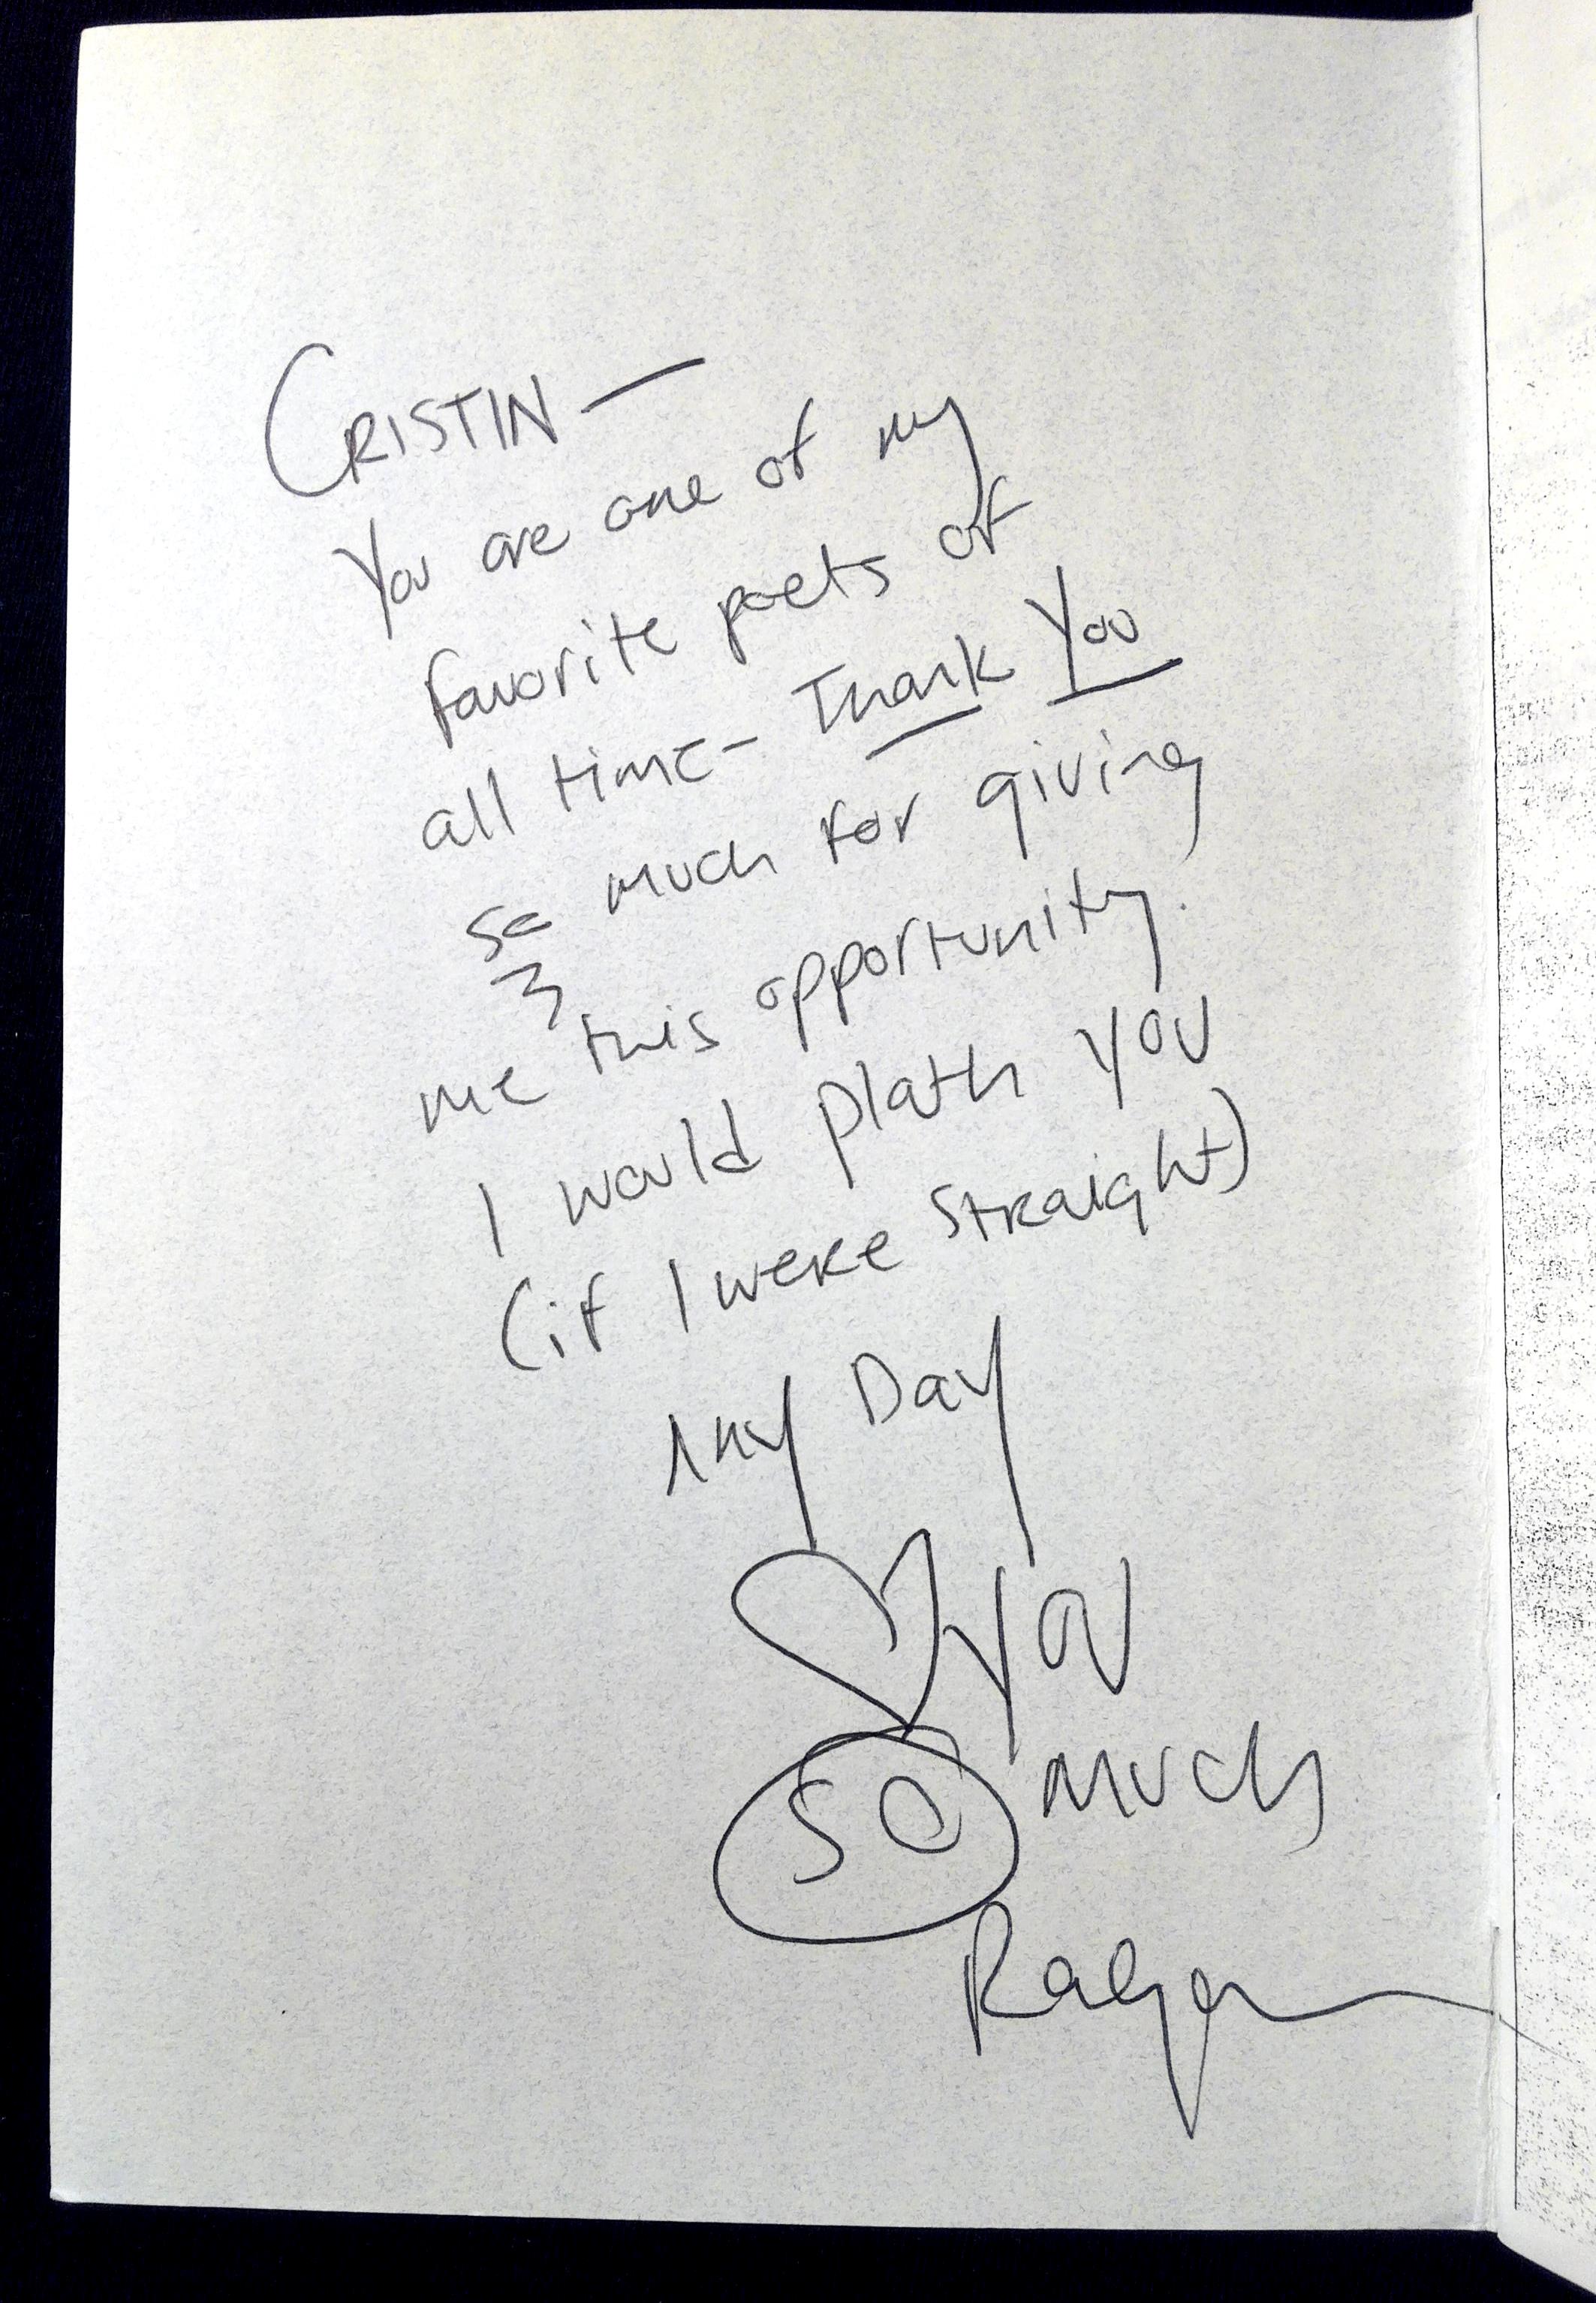 CRISTIN —
You are one of my
favorite poets of
all time - Thank You
so much for giving
me this opportunity.
I would plath you
(if I were straight)
Any Day
♡ you
SO much